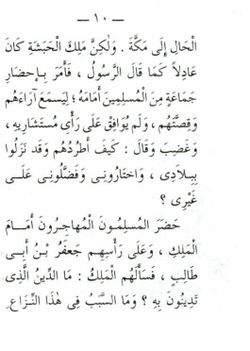 — ١٠ —
الْحَالِ إِلَى مَكَّةَ . وَلٰكِنَّ مَلِكَ الْحَبَشَةِ كَانَ
عَادِلًا كَمَا قَالَ الرَّسُولُ ، فَأَمَرَ بِإِحْضَارِ
جَمَاعَةٍ مِنَ الْمُسْلِمِينَ أَمَامَهُ ؛ لِيَسْمَعَ آرَاءَهُم
وَقِصَّتَهُم ، وَلَمْ يُوَافِقْ عَلَى رَأْىِ مُسْتَشَارِيهِ ،
وَغَضِبَ وَقَالَ : كَيْفَ أَطْرُدُهُم وَقَد نَزَلُوا
بِبِلَادِى ، وَاخْتَارُونِى وَفَضَّلُونِى عَلَـــى
غَيْرِى ؟
حَضَرَ الْمُسْلِمُـونَ الْمُهَاجِـرُونَ أَمَـــامَ
الْمَلِكِ ، وَعَلَى رَأْسِهِم جَعْفَرُ بْنُ أَبِى
طَالِبٍ ، فَسَأَلَهُم الْمَلِكُ : مَا الدِّينُ الَّذِى
تَدِينُونَ بِهِ ؟ وَمَا السَّبَبُ فِى هٰذَا النِّزَاعِ .